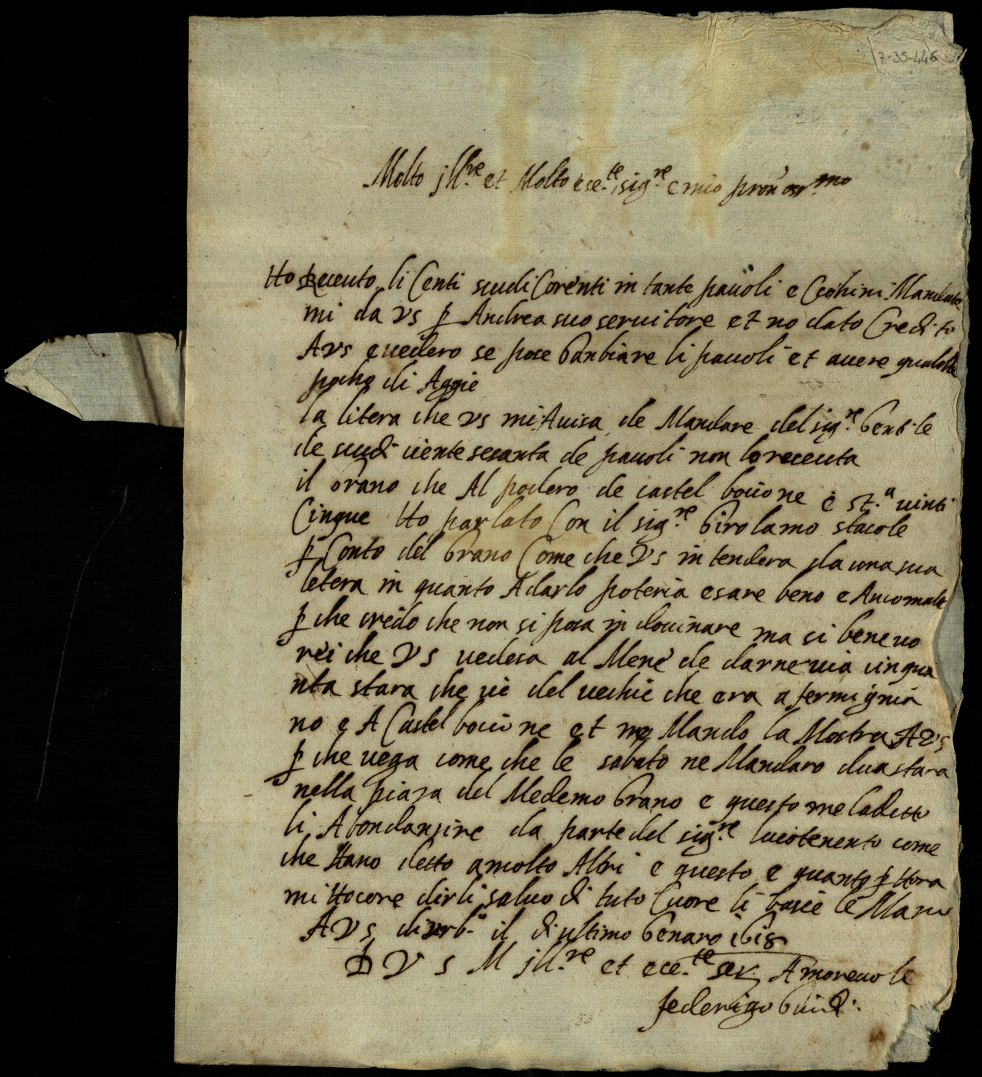 7-35-446
Molto jll.re et Molto ece.te sig.re e mio pron oss.mo
Ho receuto li Centi scudi Corenti in tante pauoli e Cechini Mandate
mi da vs p Andrea suo seruitore et no dato Credito
A vs e vedero se pose banbiare li pauoli et auere qualche
pocho di Aggie
la litera che vs mi Auisa de Mandare del sig.re Gentile
de scudi ciente sesanta de pauoli non lo receuta
il Grano che Al podero de castel bocione è st.a uinti
Cinque Ho parlato Con il sig.re Girolamo stacole
p Conto del Grano Come che Vs intendera da una sua
letera in quanto A darlo poteria esare bene e Anco male
p che credo che non si posa indouinare ma si bene uo
rei che Vs uedesa al Mene de darne uia cinqua
nta stara che uè del uechie che era a fermignia
no e A Castel bocione et ne Mando la Mostra A Vs
p che uega come che le sabato ne Mandaro dua stara
nella piaza del Medemo Grano e questo me la ditto
li Abondansire da parte del sig.re locotenento come
che Hano detto a molto Altri e questo e quanto p Hora
mi Hocore dirli saluo di tuto Cuore li bacie le Mane
A Vs di urb.o il di ultimo Genaro 1618
D V S M jll.re et ece.te ser. Amoreuole
federigo